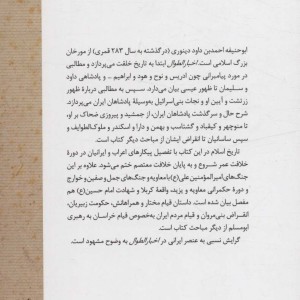 ابوحنیفه احمدبن داود دینوری (درگذشته به سال ۲۸۳ قمری) از مورخان
بزرگ اسلامی است. اخبارالطوال ابتدا به تاریخ خلقت می‌پردازد و مطالبی
در مورد پیامبرانی چون ادریس و نوح و هود و ابراهیم ... و پادشاهی داود
و سلیمان تا ظهور عیسی بیان می‌دارد. سپس به مطالبی درباره ظهور
زرتشت و آیین او و نجات بنی‌اسرائیل به‌وسیلهٔ پادشاهان ایران می‌پردازد.
شرح حال و سرگذشت پادشاهان ایران، از جمشید و پیروزی ضحاک بر او،
تا منوچهر و کیقباد و گشتاسب و بهمن و دارا و اسکندر و ملوک‌الطوایف و
سپس ساسانیان تا انقراض ایشان از مباحث دیگر کتاب است.
تاریخ اسلام در این کتاب با تفصیل پیکارهای اعراب و ایرانیان در دورهٔ
خلافت عمر شروع و به پایان خلافت معتصم ختم می‌شود. علاوه بر این
جنگ‌های امیرالمؤمنین علی(ع) با معاویه و جنگ‌های جمل و صفین و خوارج
و دورهٔ حکمرانی معاویه و یزید، واقعهٔ کربلا و شهادت امام حسین(ع) هم
مفصل بیان شده است. داستان قیام مختار و همراهانش، حکومت زبیریان،
انقراض بنی‌مروان و قیام مردم ایران به‌خصوص قیام خراسان به رهبری
ابومسلم از دیگر مباحث کتاب است.
گرایش نسبی به عنصر ایرانی در اخبارالطوال به وضوح مشهود است.